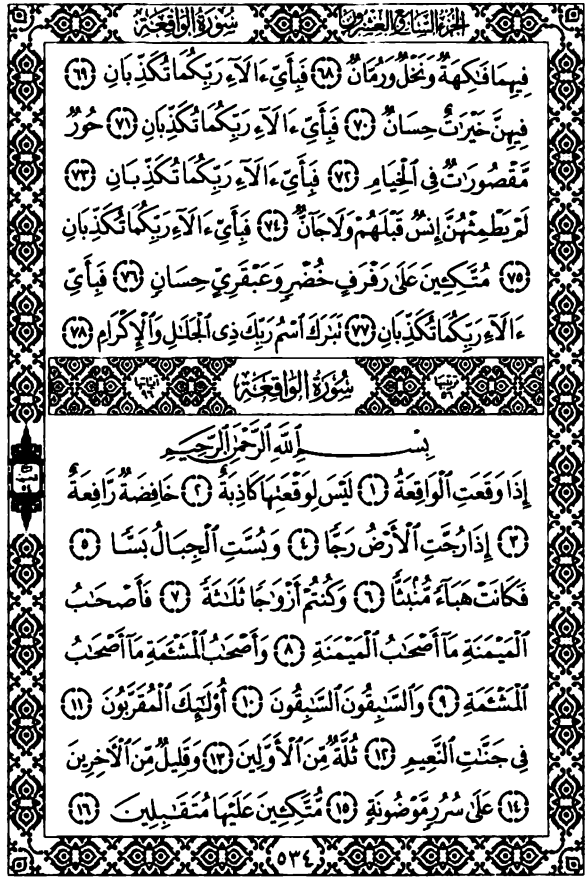 سُورَةُ الوَاقِعَةِ الجُزءُ السَّابِعُ وَالعِشرُونَ
فِيهِمَا فَـٰكِهَةٌ وَنَخْلٌ وَرُمَّانٌ ﴿٦٨﴾ فَبِأَىِّ ءَالَآءِ رَبِّكُمَا تُكَذِّبَانِ ﴿٦٩﴾
فِيهِنَّ خَيْرَٰتٌ حِسَانٌ ﴿٧٠﴾ فَبِأَىِّ ءَالَآءِ رَبِّكُمَا تُكَذِّبَانِ ﴿٧١﴾ حُورٌ
مَّقْصُورَٰتٌ فِى ٱلْخِيَامِ ﴿٧٢﴾ فَبِأَىِّ ءَالَآءِ رَبِّكُمَا تُكَذِّبَانِ ﴿٧٣﴾
لَمْ يَطْمِثْهُنَّ إِنسٌ قَبْلَهُمْ وَلَا جَآنٌّ ﴿٧٤﴾ فَبِأَىِّ ءَالَآءِ رَبِّكُمَا تُكَذِّبَانِ
﴿٧٥﴾ مُتَّكِـِٔينَ عَلَىٰ رَفْرَفٍ خُضْرٍ وَعَبْقَرِىٍّ حِسَانٍ ﴿٧٦﴾ فَبِأَىِّ
ءَالَآءِ رَبِّكُمَا تُكَذِّبَانِ ﴿٧٧﴾ تَبَـٰرَكَ ٱسْمُ رَبِّكَ ذِى ٱلْجَلَـٰلِ وَٱلْإِكْرَامِ ﴿٧٨﴾
ترتيبها ٥٦ سُورَةُ الوَاقِعَةِ آياتها ٩٦
بِسْمِ ٱللَّهِ ٱلرَّحْمَـٰنِ ٱلرَّحِيمِ
إِذَا وَقَعَتِ ٱلْوَاقِعَةُ ﴿١﴾ لَيْسَ لِوَقْعَتِهَا كَاذِبَةٌ ﴿٢﴾ خَافِضَةٌ رَّافِعَةٌ
﴿٣﴾ إِذَا رُجَّتِ ٱلْأَرْضُ رَجًّا ﴿٤﴾ وَبُسَّتِ ٱلْجِبَالُ بَسًّا ﴿٥﴾
فَكَانَتْ هَبَآءً مُّنۢبَثًّا ﴿٦﴾ وَكُنتُمْ أَزْوَٰجًا ثَلَـٰثَةً ﴿٧﴾ فَأَصْحَـٰبُ
ٱلْمَيْمَنَةِ مَآ أَصْحَـٰبُ ٱلْمَيْمَنَةِ ﴿٨﴾ وَأَصْحَـٰبُ ٱلْمَشْـَٔمَةِ مَآ أَصْحَـٰبُ
ٱلْمَشْـَٔمَةِ ﴿٩﴾ وَٱلسَّـٰبِقُونَ ٱلسَّـٰبِقُونَ ﴿١٠﴾ أُو۟لَـٰٓئِكَ ٱلْمُقَرَّبُونَ ﴿١١﴾
فِى جَنَّـٰتِ ٱلنَّعِيمِ ﴿١٢﴾ ثُلَّةٌ مِّنَ ٱلْأَوَّلِينَ ﴿١٣﴾ وَقَلِيلٌ مِّنَ ٱلْـَٔاخِرِينَ
﴿١٤﴾ عَلَىٰ سُرُرٍ مَّوْضُونَةٍ ﴿١٥﴾ مُّتَّكِـِٔينَ عَلَيْهَا مُتَقَـٰبِلِينَ ﴿١٦﴾
٥٣٤